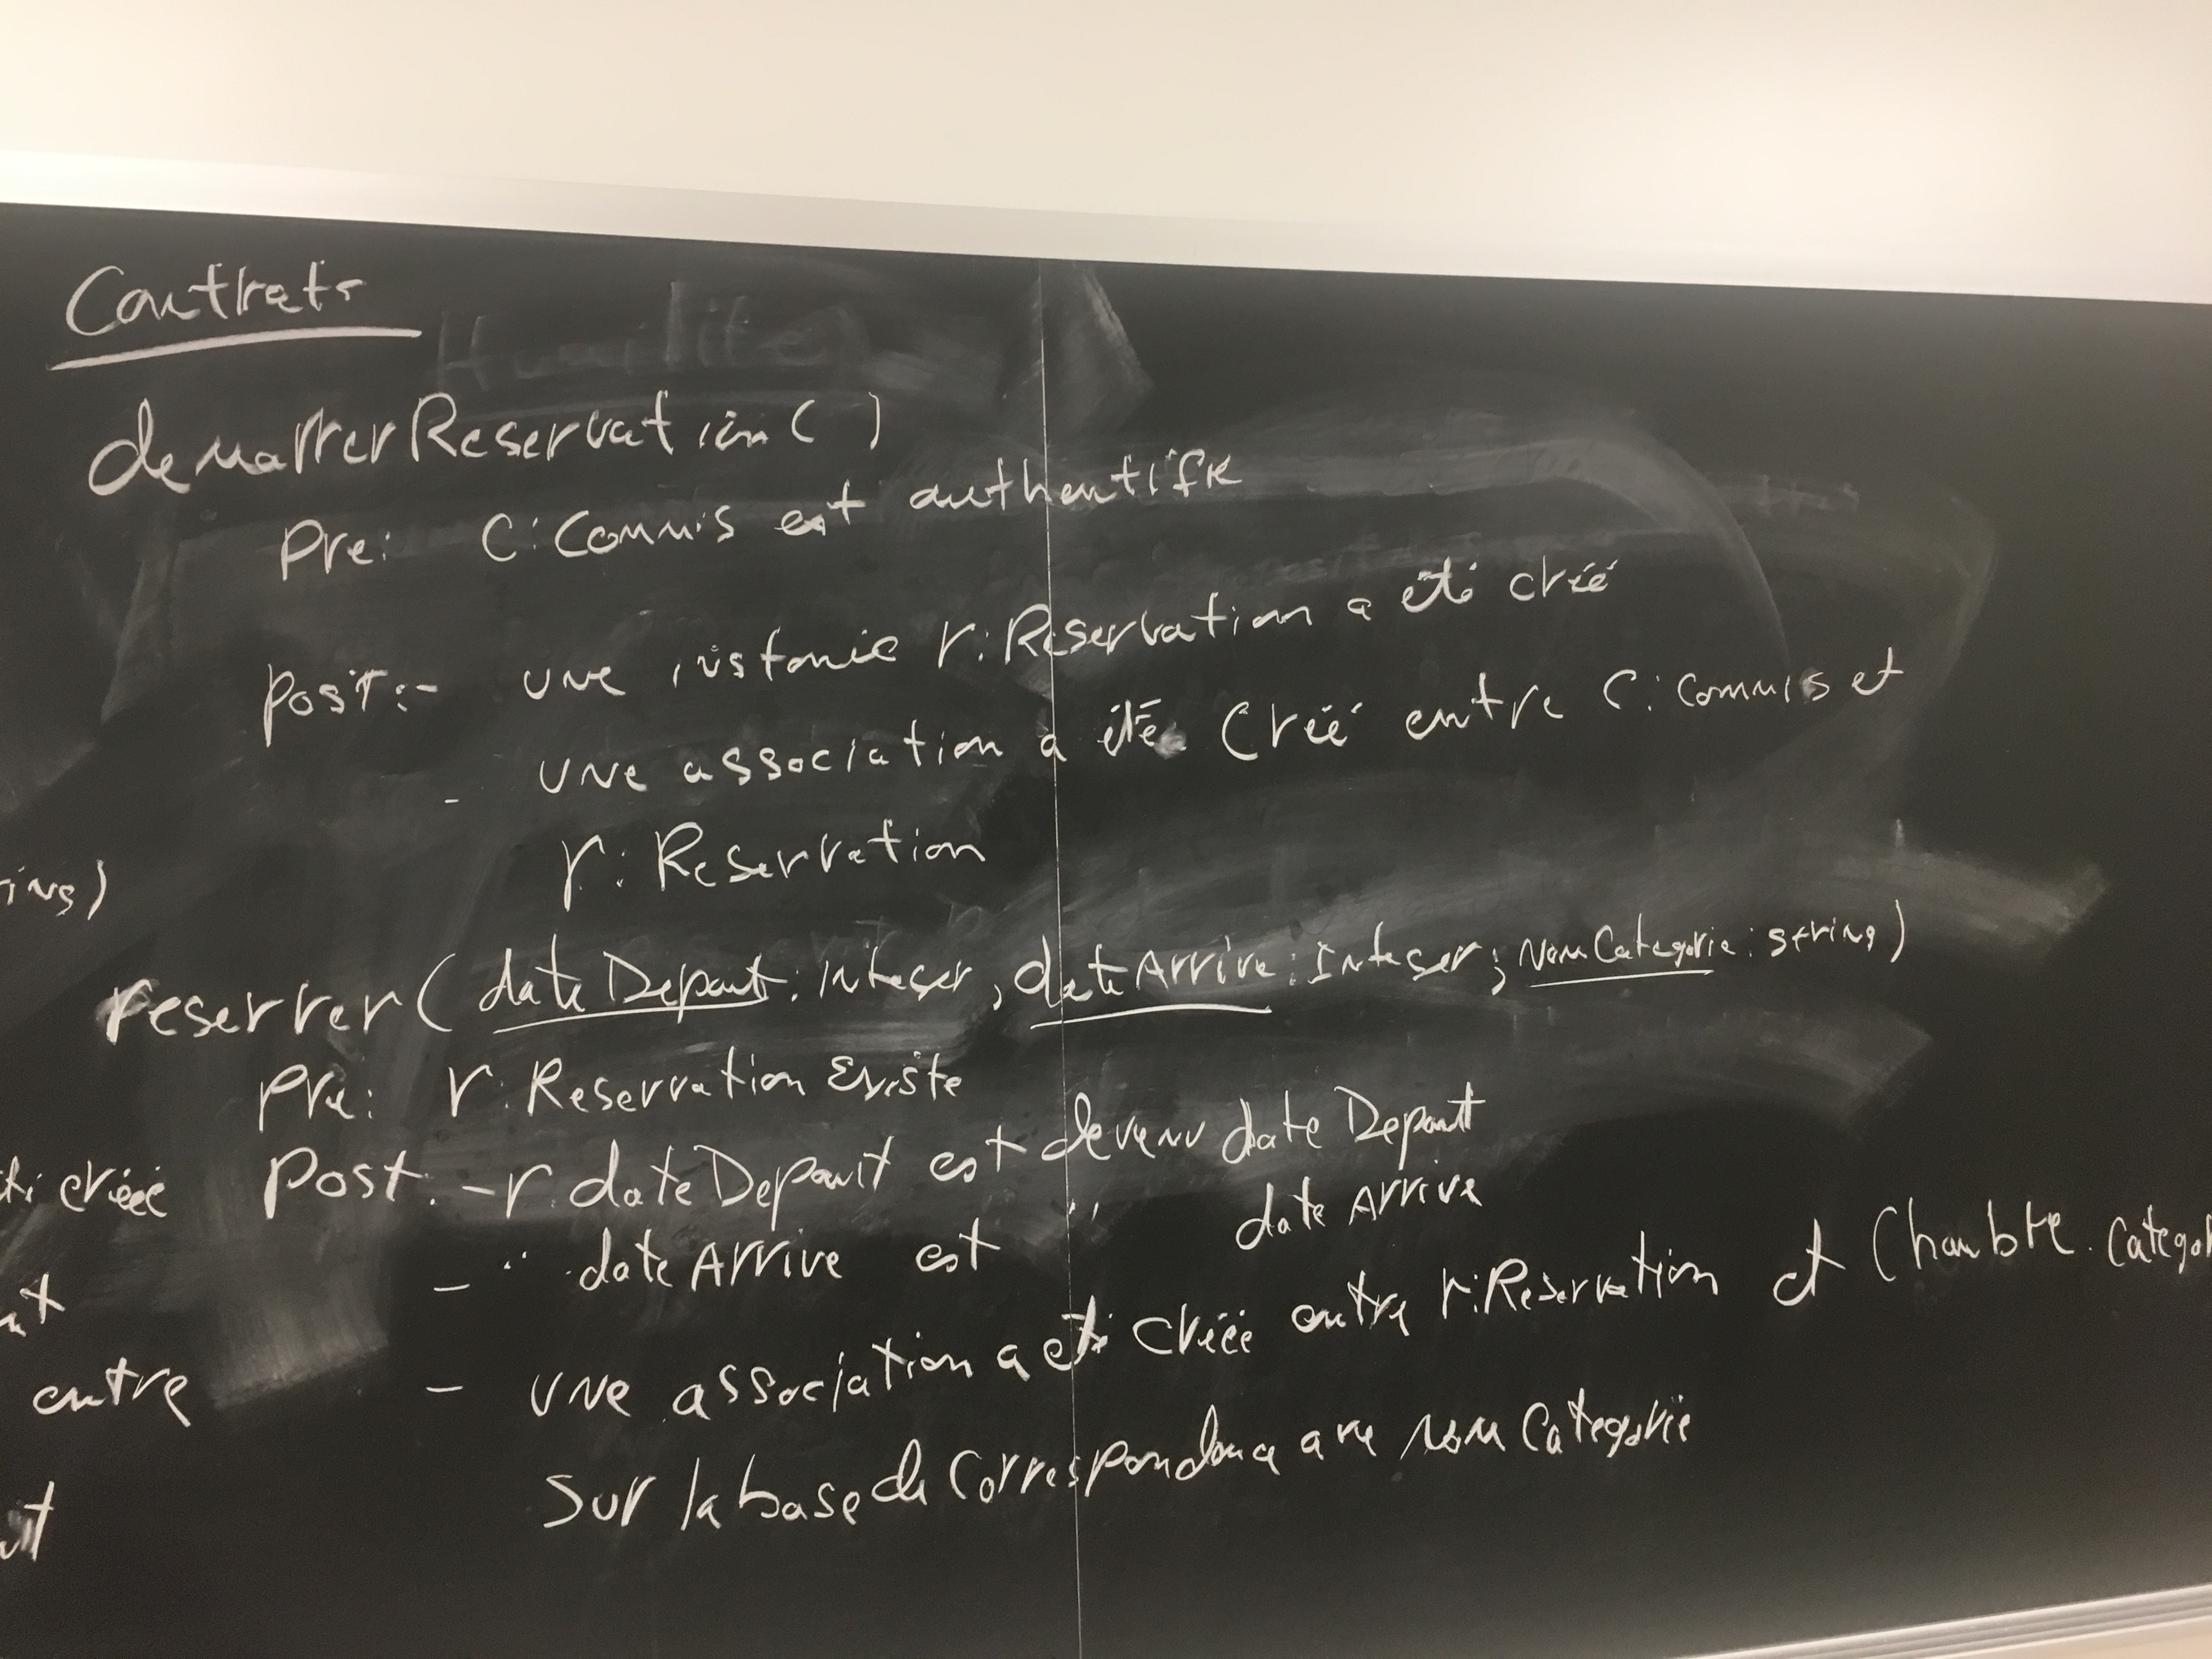 Contrats
demarrerReservation( )
Pre: C:Commis est authentifié
Post:- une instance r:Reservation a été créé
- une association a été Créé entre C:Commis et
r:Reservation
ring)
reserver(dateDepart:Integer, dateArrive:Integer; NomCategorie:string)
Pre: r:Reservation Existe
Post:-r.dateDepart est devenu dateDepart
- " .dateArrive est " dateArrive
- une association a été créée entre r:Reservation et Chambre.Categor
sur la base de Correspondance avec nomCategorie
créée
entre